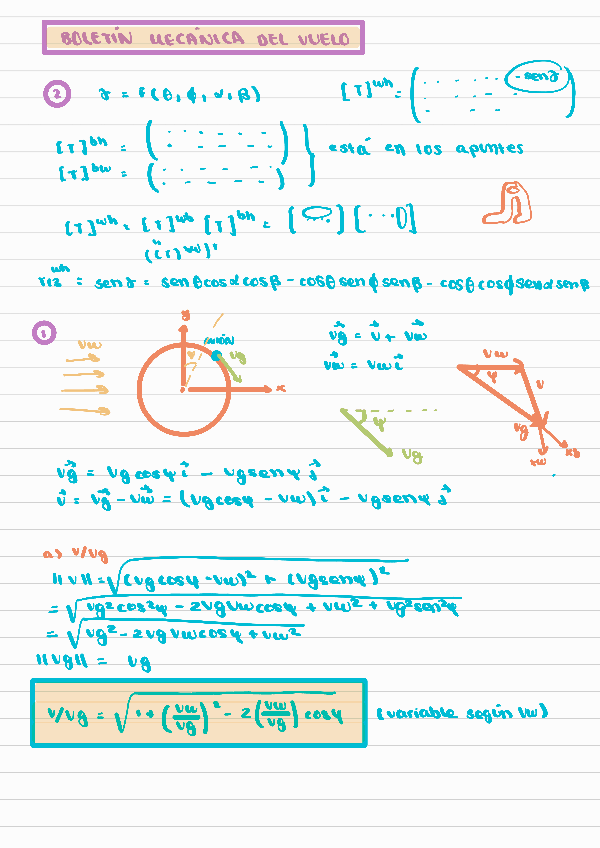 BOLETÍN MECÁNICA DEL VUELO
② γ = F(θ, φ, α, β) [T]^wh = ( -senγ )
[T]^bh = ( )
[T]^bw = ( ) está en los apuntes
[T]^wh = [T]^wb [T]^bh = [ ] [ ]
([T]^bw)^T
senγ = senθcosαcosβ - cosθsenφsenβ - cosθcosφsenαsenβ
①
Vw
y
AVIÓN
ψ
Vg
x
Vg = V + Vw
Vw = Vw i
ψ
Vg
Vw
ψ
V
Vg
xw
xb
Vg = Vgcosψ i - Vgsenψ j
V = Vg - Vw = (Vgcosψ - Vw) i - Vgsenψ j
a) V/Vg
||V|| = √(Vgcosψ - Vw)² + (Vgsenψ)²
= √Vg²cos²ψ - 2VgVwcosψ + Vw² + Vg²sen²ψ
= √Vg² - 2VgVwcosψ + Vw²
||Vg|| = Vg
V/Vg = √1 + (Vw/Vg)² - 2(Vw/Vg) cosψ (variable según Vw)